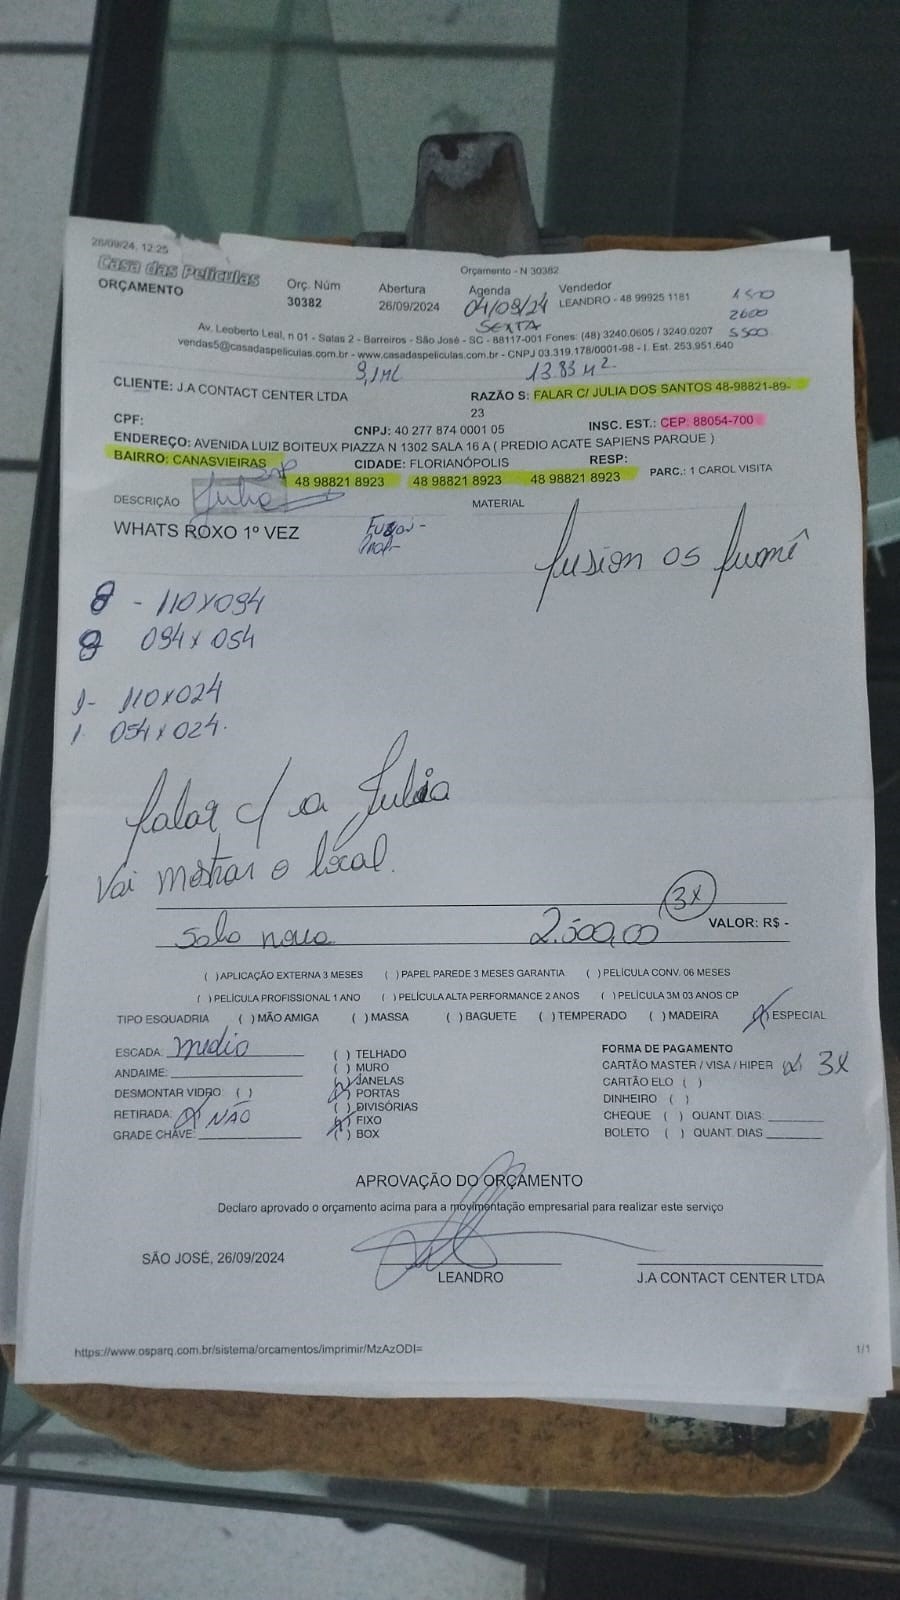 26/09/24, 12:25
Orçamento - N 30382
Casa das Películas
ORÇAMENTO
Orç. Núm
30382
Abertura
26/09/2024
Agenda
04/09/24
SEXTA
Vendedor
LEANDRO - 48 99925 1181
2600
5500
Av. Leoberto Leal, n 01 - Salas 2 - Barreiros - São José - SC - 88117-001 Fones: (48) 3240.0605 / 3240.0207
vendas5@casadaspeliculas.com.br - www.casadaspeliculas.com.br - CNPJ 03.319.178/0001-98 - I. Est. 253.951.640
9,1ML
13.83 M2.
CLIENTE: J.A CONTACT CENTER LTDA
RAZÃO S: FALAR C/ JULIA DOS SANTOS 48-98821-89-
23
CPF:
CNPJ: 40 277 874 0001 05
INSC. EST.: CEP: 88054-700
ENDEREÇO: AVENIDA LUIZ BOITEUX PIAZZA N 1302 SALA 16 A ( PREDIO ACATE SAPIENS PARQUE )
BAIRRO: CANASVIEIRAS
CIDADE: FLORIANÓPOLIS
RESP:
48 98821 8923
48 98821 8923
48 98821 8923
PARC.: 1 CAROL VISITA
DESCRIÇÃO
Julia
MATERIAL
WHATS ROXO 1º VEZ
fusion os fumê
8 - 110x094
8 094x054
1- 110x024
1. 054x024.
falar c/ a Julia
Vai mostrar o local.
3x
sala nova
2.500,00
VALOR: R$ -
( ) APLICAÇÃO EXTERNA 3 MESES ( ) PAPEL PAREDE 3 MESES GARANTIA ( ) PELÍCULA CONV. 06 MESES
( ) PELÍCULA PROFISSIONAL 1 ANO ( ) PELÍCULA ALTA PERFORMANCE 2 ANOS ( ) PELÍCULA 3M 03 ANOS CP
TIPO ESQUADRIA ( ) MÃO AMIGA ( ) MASSA ( ) BAGUETE ( ) TEMPERADO ( ) MADEIRA (x) ESPECIAL
ESCADA: medio
ANDAIME:
DESMONTAR VIDRO: ( )
RETIRADA: (x) NÃO
GRADE CHAVE:
( ) TELHADO
( ) MURO
(x) JANELAS
(x) PORTAS
( ) DIVISÓRIAS
(x) FIXO
( ) BOX
FORMA DE PAGAMENTO
CARTÃO MASTER / VISA / HIPER (x) 3x
CARTÃO ELO ( )
DINHEIRO ( )
CHEQUE ( ) QUANT. DIAS:
BOLETO ( ) QUANT. DIAS
APROVAÇÃO DO ORÇAMENTO
Declaro aprovado o orçamento acima para a movimentação empresarial para realizar este serviço
SÃO JOSÉ, 26/09/2024
LEANDRO
J.A CONTACT CENTER LTDA
https://www.osparq.com.br/sistema/orcamentos/imprimir/MzAzODI=
1/1